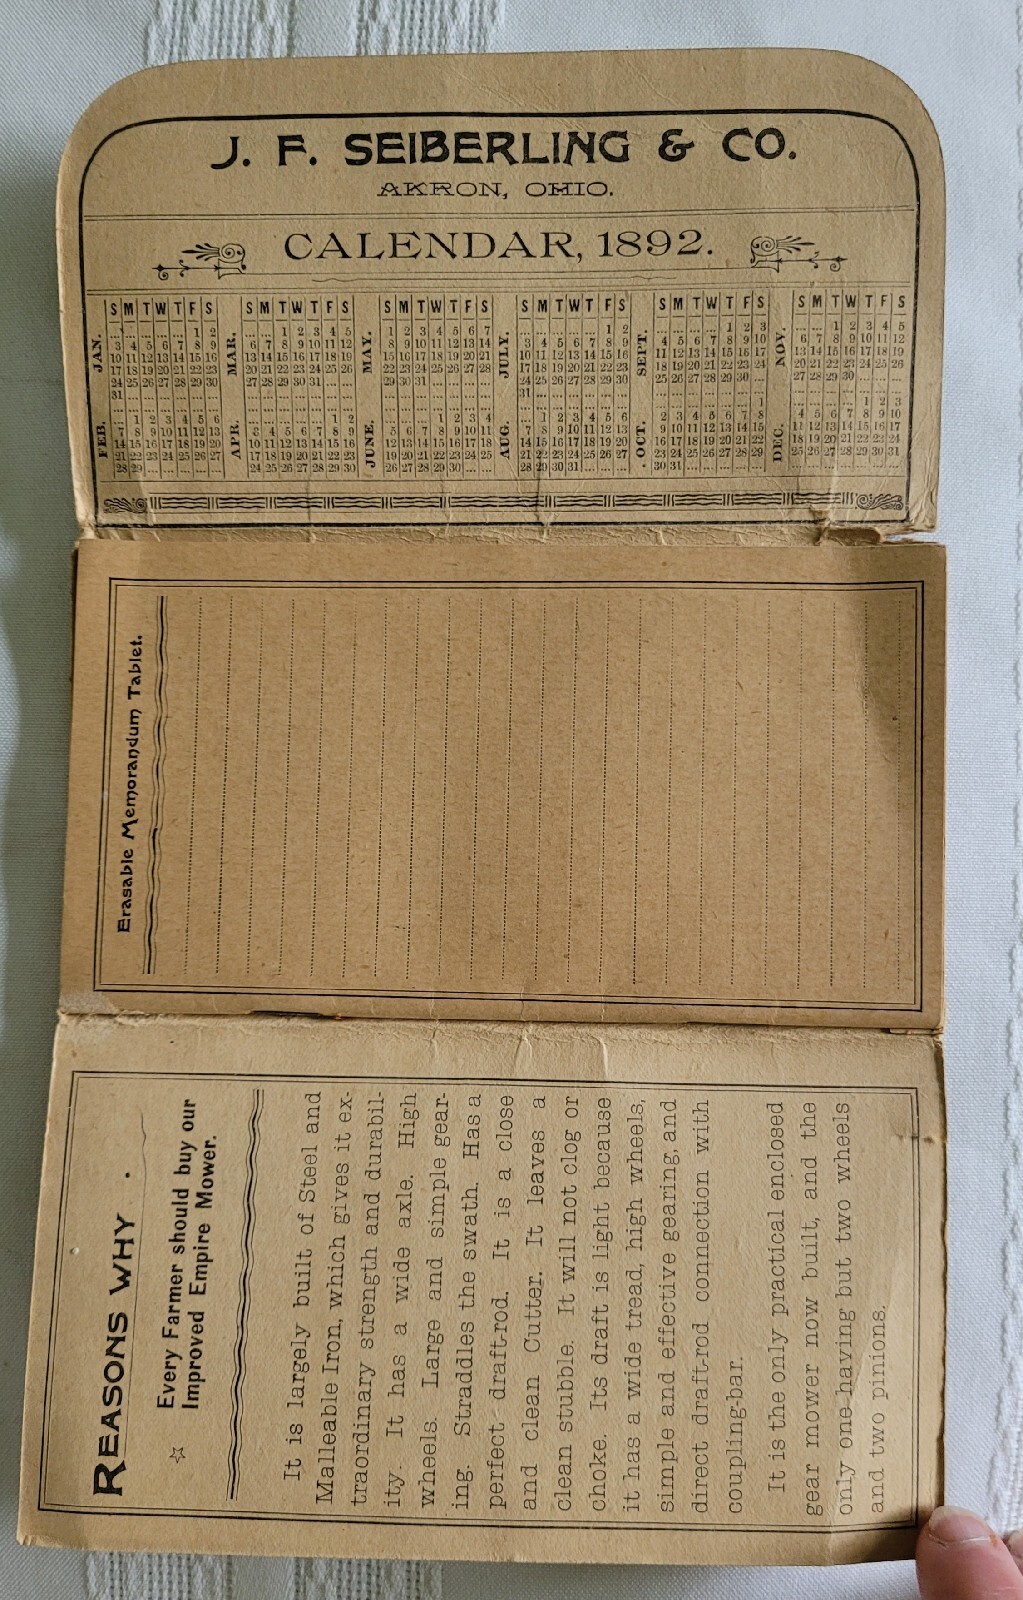 J. F. SEIBERLING & CO.
AKRON, OHIO.
CALENDAR, 1892.
JAN.
S M T W T F S
1 2
3 4 5 6 7 8 9
10 11 12 13 14 15 16
17 18 19 20 21 22 23
24 25 26 27 28 29 30
31
FEB.
1 2 3 4 5 6
7 8 9 10 11 12 13
14 15 16 17 18 19 20
21 22 23 24 25 26 27
28 29
MAR.
S M T W T F S
1 2 3 4 5
6 7 8 9 10 11 12
13 14 15 16 17 18 19
20 21 22 23 24 25 26
27 28 29 30 31
APR.
1 2
3 4 5 6 7 8 9
10 11 12 13 14 15 16
17 18 19 20 21 22 23
24 25 26 27 28 29 30
MAY.
S M T W T F S
1 2 3 4 5 6 7
8 9 10 11 12 13 14
15 16 17 18 19 20 21
22 23 24 25 26 27 28
29 30 31
JUNE.
1 2 3 4
5 6 7 8 9 10 11
12 13 14 15 16 17 18
19 20 21 22 23 24 25
26 27 28 29 30
JULY.
S M T W T F S
1 2
3 4 5 6 7 8 9
10 11 12 13 14 15 16
17 18 19 20 21 22 23
24 25 26 27 28 29 30
31
AUG.
1 2 3 4 5 6
7 8 9 10 11 12 13
14 15 16 17 18 19 20
21 22 23 24 25 26 27
28 29 30 31
SEPT.
S M T W T F S
1 2 3
4 5 6 7 8 9 10
11 12 13 14 15 16 17
18 19 20 21 22 23 24
25 26 27 28 29 30
OCT.
1
2 3 4 5 6 7 8
9 10 11 12 13 14 15
16 17 18 19 20 21 22
23 24 25 26 27 28 29
30 31
NOV.
S M T W T F S
1 2 3 4 5
6 7 8 9 10 11 12
13 14 15 16 17 18 19
20 21 22 23 24 25 26
27 28 29 30
DEC.
1 2 3
4 5 6 7 8 9 10
11 12 13 14 15 16 17
18 19 20 21 22 23 24
25 26 27 28 29 30 31
Erasable Memorandum Tablet.
REASONS WHY
Every Farmer should buy our
Improved Empire Mower.
It is largely built of Steel and
Malleable Iron, which gives it ex-
traordinary strength and durabil-
ity. It has a wide axle. High
wheels. Large and simple gear-
ing. Straddles the swath. Has a
perfect draft-rod. It is a close
and clean Cutter. It leaves a
clean stubble. It will not clog or
choke. Its draft is light because
it has a wide tread, high wheels,
simple and effective gearing, and
direct draft-rod connection with
coupling-bar.
It is the only practical enclosed
gear mower now built, and the
only one having but two wheels
and two pinions.